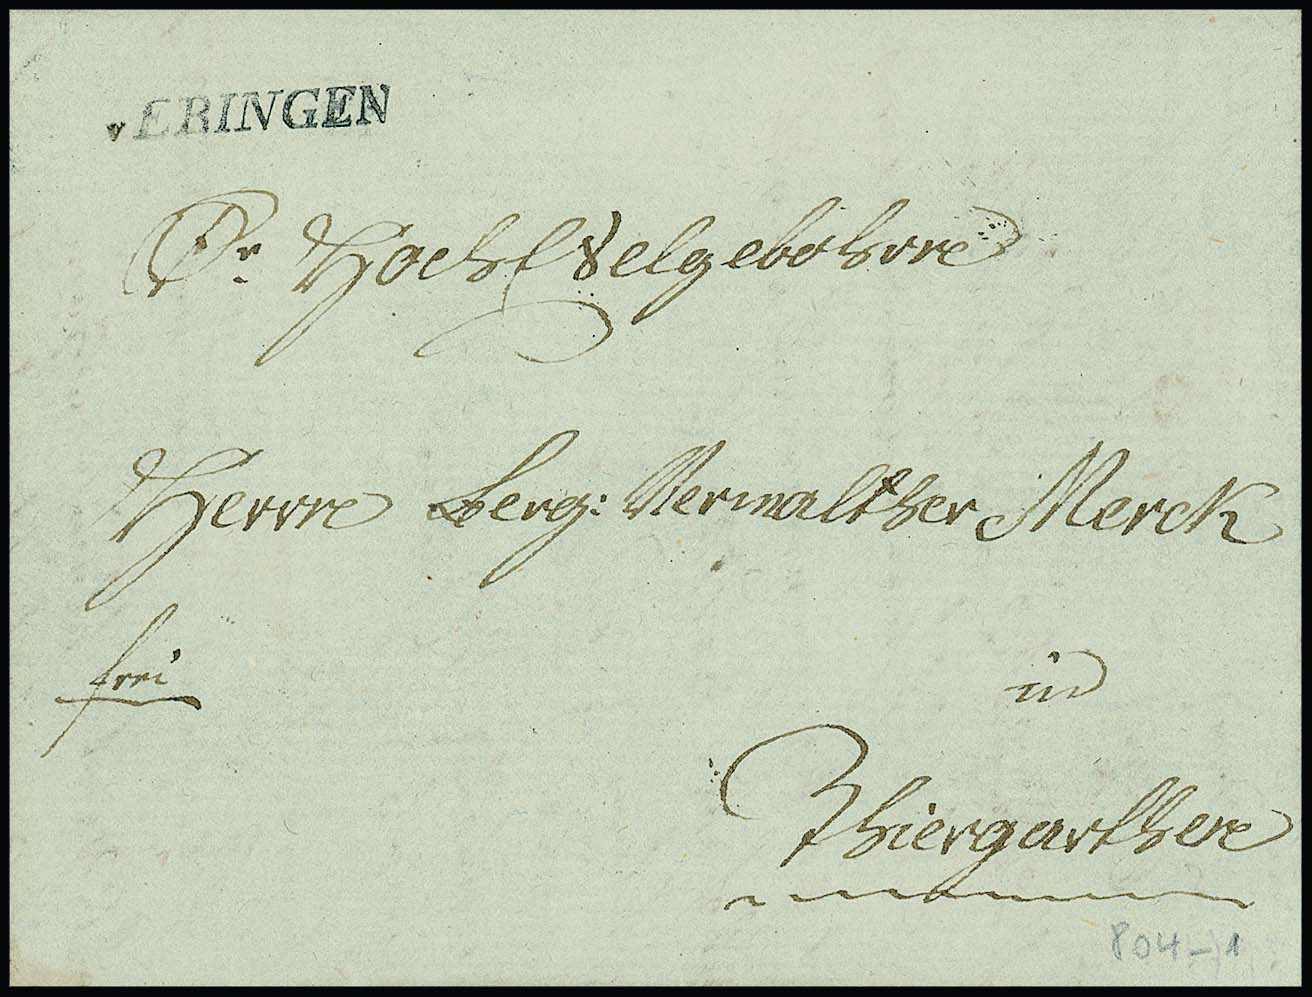 v ERINGEN
Sr Hoch Edelgebohrn
Herrn Berg: Verwalther Merck
frei
in
Thiergarthen
804-1